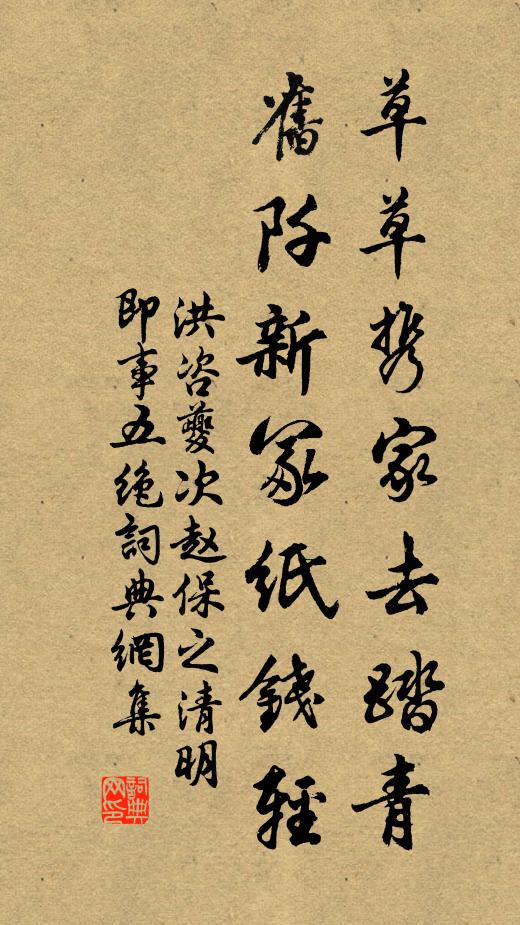 草草携家去踏青
舊阡新冢紙錢輕
洪咨夔次赵保之清明
即事五绝詞典網集
詞典
网印